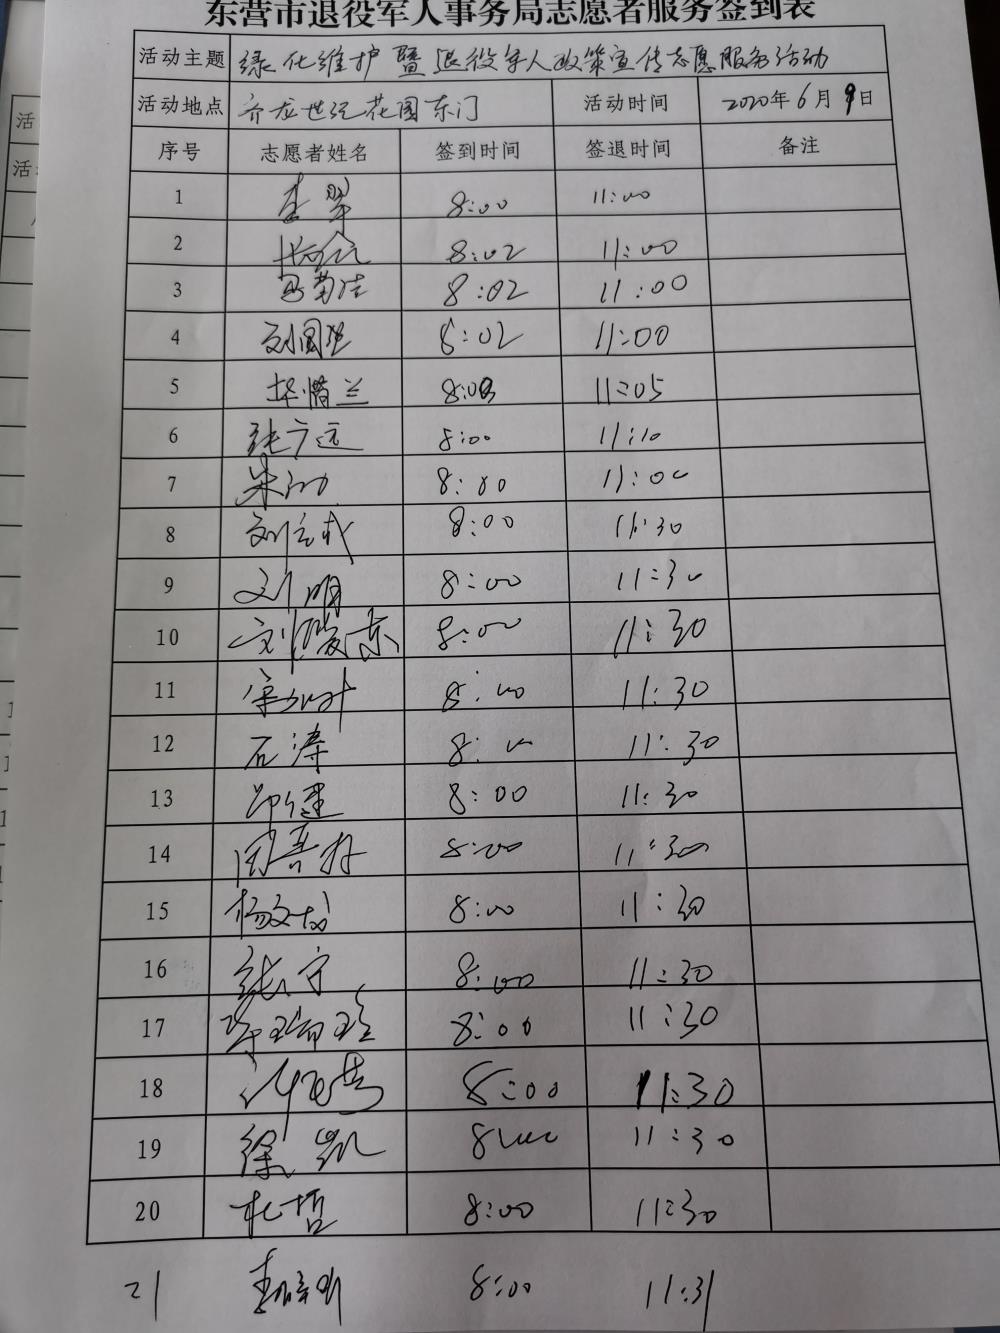 东营市退役军人事务局志愿者服务签到表
活动主题 绿化维护暨退役军人政策宣传志愿服务活动
活动地点 齐龙世纪花园东门 活动时间 2020年6月9日
序号 志愿者姓名 签到时间 签退时间 备注
1 李翠 8:00 11:00
2 8:02 11:00
3 马菊洁 8:02 11:00
4 刘国强 8:02 11:00
5 毕惜兰 8:03 11:05
6 张广远 8:00 11:10
7 朱 8:00 11:00
8 刘立成 8:00 11:30
9 刘明 8:00 11:30
10 刘霞东 8:00 11:30
11 8:00 11:30
12 石涛 8:00 11:30
13 邵健 8:00 11:30
14 周喜村 8:00 11:30
15 杨文 8:00 11:30
16 张宁 8:00 11:30
17 8:00 11:30
18 8:00 11:30
19 徐凯 8:00 11:30
20 杜哲 8:00 11:30
21 8:00 11:31
活
活